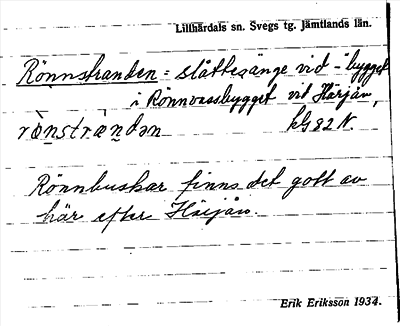 Lillhärdals sn. Svegs tg. Jämtlands län.
Rönnstranden = slåttesänge vid - bygget
i Rönnvassbygget vid Härjån,
rö̀nstràndən kG 82 N.
Rönnbuskar finns det gott av
här efter Härjån.
Erik Eriksson 1934.